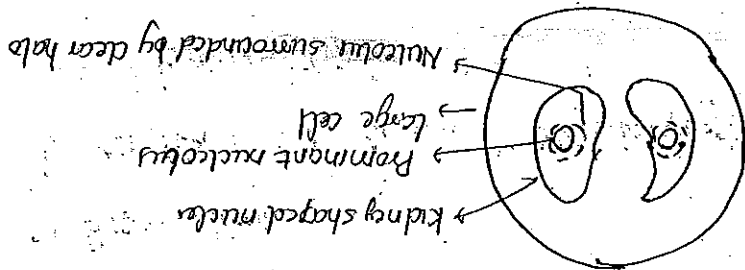 Kidney shaped nuclei
Prominant nucleolus
Large cell
Nuleolus surrounded by clear halo